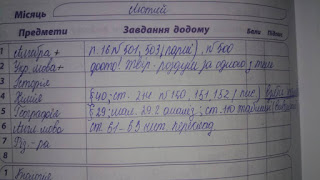 Місяць Лютий
Предмети Завдання додому Бали Підпис
1 Алгебра + п.16 № 501, 503 (парні), № 500
2 Укр. мова + твір-роздум за одною з тем
3 Історія
4 Хімія § 40; ст. 211 № 150, 151, 152 (
5 Географія § 29; мал. 29.2 аналіз; ст. 110
6 мова ст. 61 - 63 переклад
7 Фіз-ра
8
1